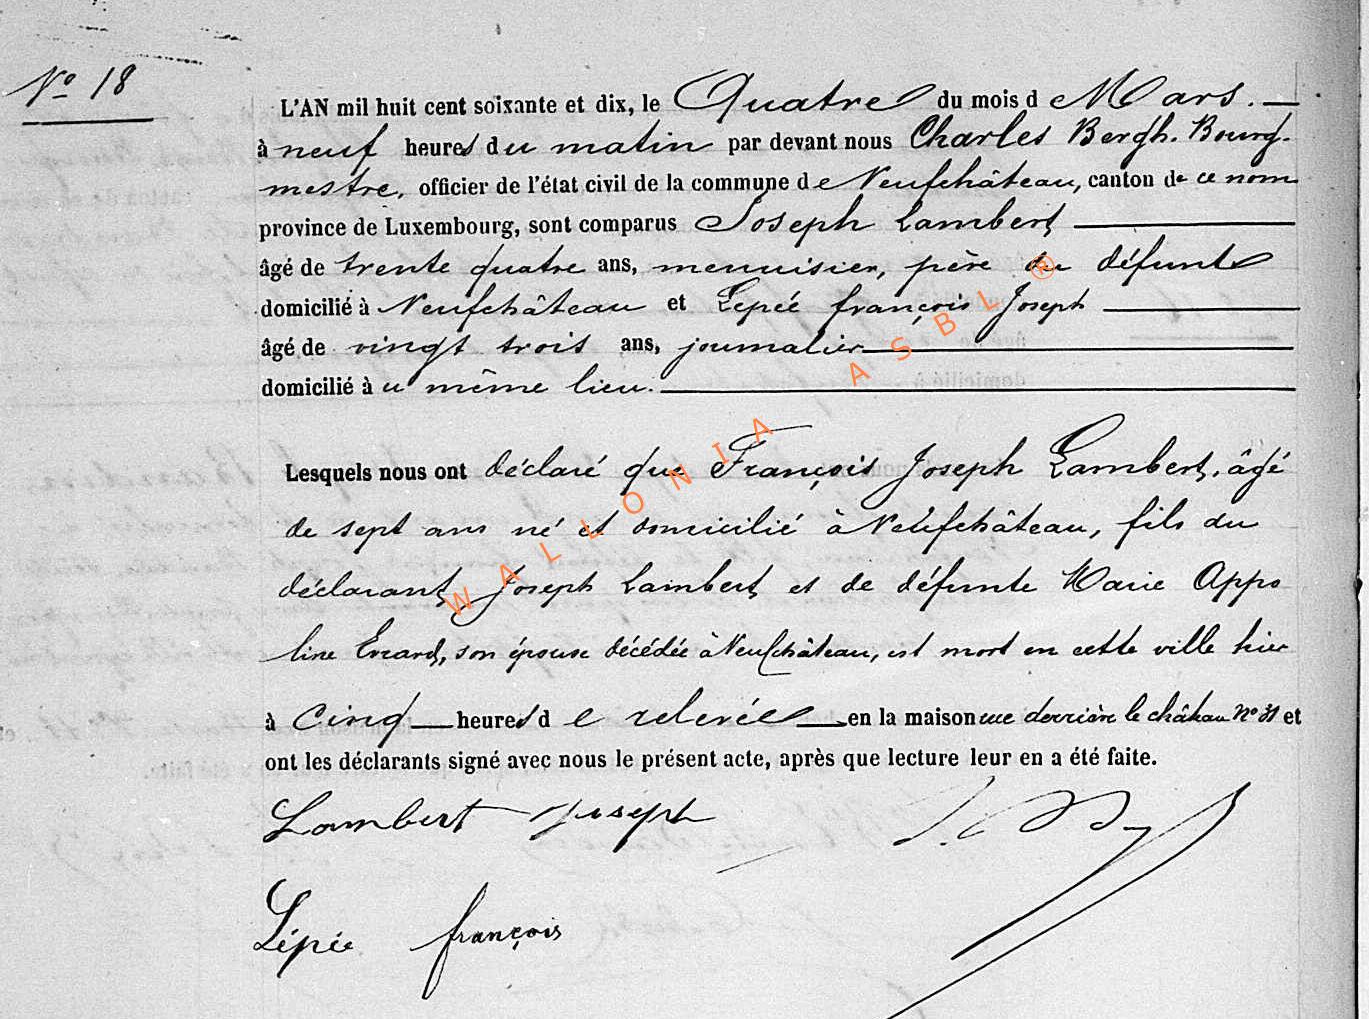 No 18
L'AN mil huit cent soixante et dix, le Quatre du mois de Mars.
à neuf heures du matin par devant nous Charles Bergh. Bourg-
mestre, officier de l'état civil de la commune de Neufchâteau, canton de ce nom
province de Luxembourg, sont comparus Joseph Lambert
âgé de trente quatre ans, menuisier, père du défunt
domicilié à Neufchâteau et Lepée françois Joseph
âgé de vingt trois ans, journalier
domicilié au même lieu.
Lesquels nous ont déclaré que François Joseph Lambert, âgé
de sept ans né et domicilié à Neufchâteau, fils du
déclarant Joseph Lambert et de défunte Marie Appo
line Evrard, son épouse décédée à Neufchâteau, est mort en cette ville hier
à cinq heures de relevée en la maison rue derrière le château No 31 et
ont les déclarants signé avec nous le présent acte, après que lecture leur en a été faite.
Lambert Joseph
Lépée françois
WALLONIA ASBL ®